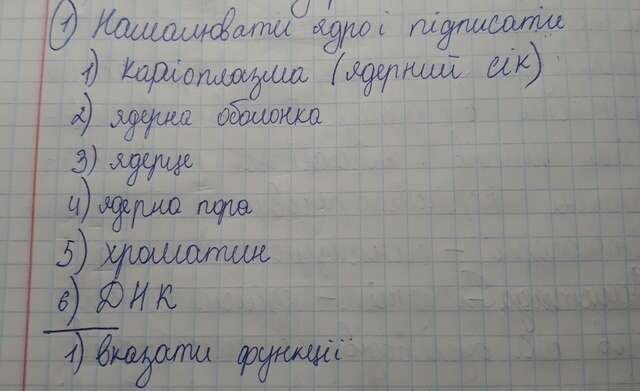 1 Намалювати ядро і підписати
1) Каріоплазма (ядерний сік)
2) ядерна оболонка
3) ядерце
4) ядерна пора
5) хроматин
6) ДНК
1) вказати функції